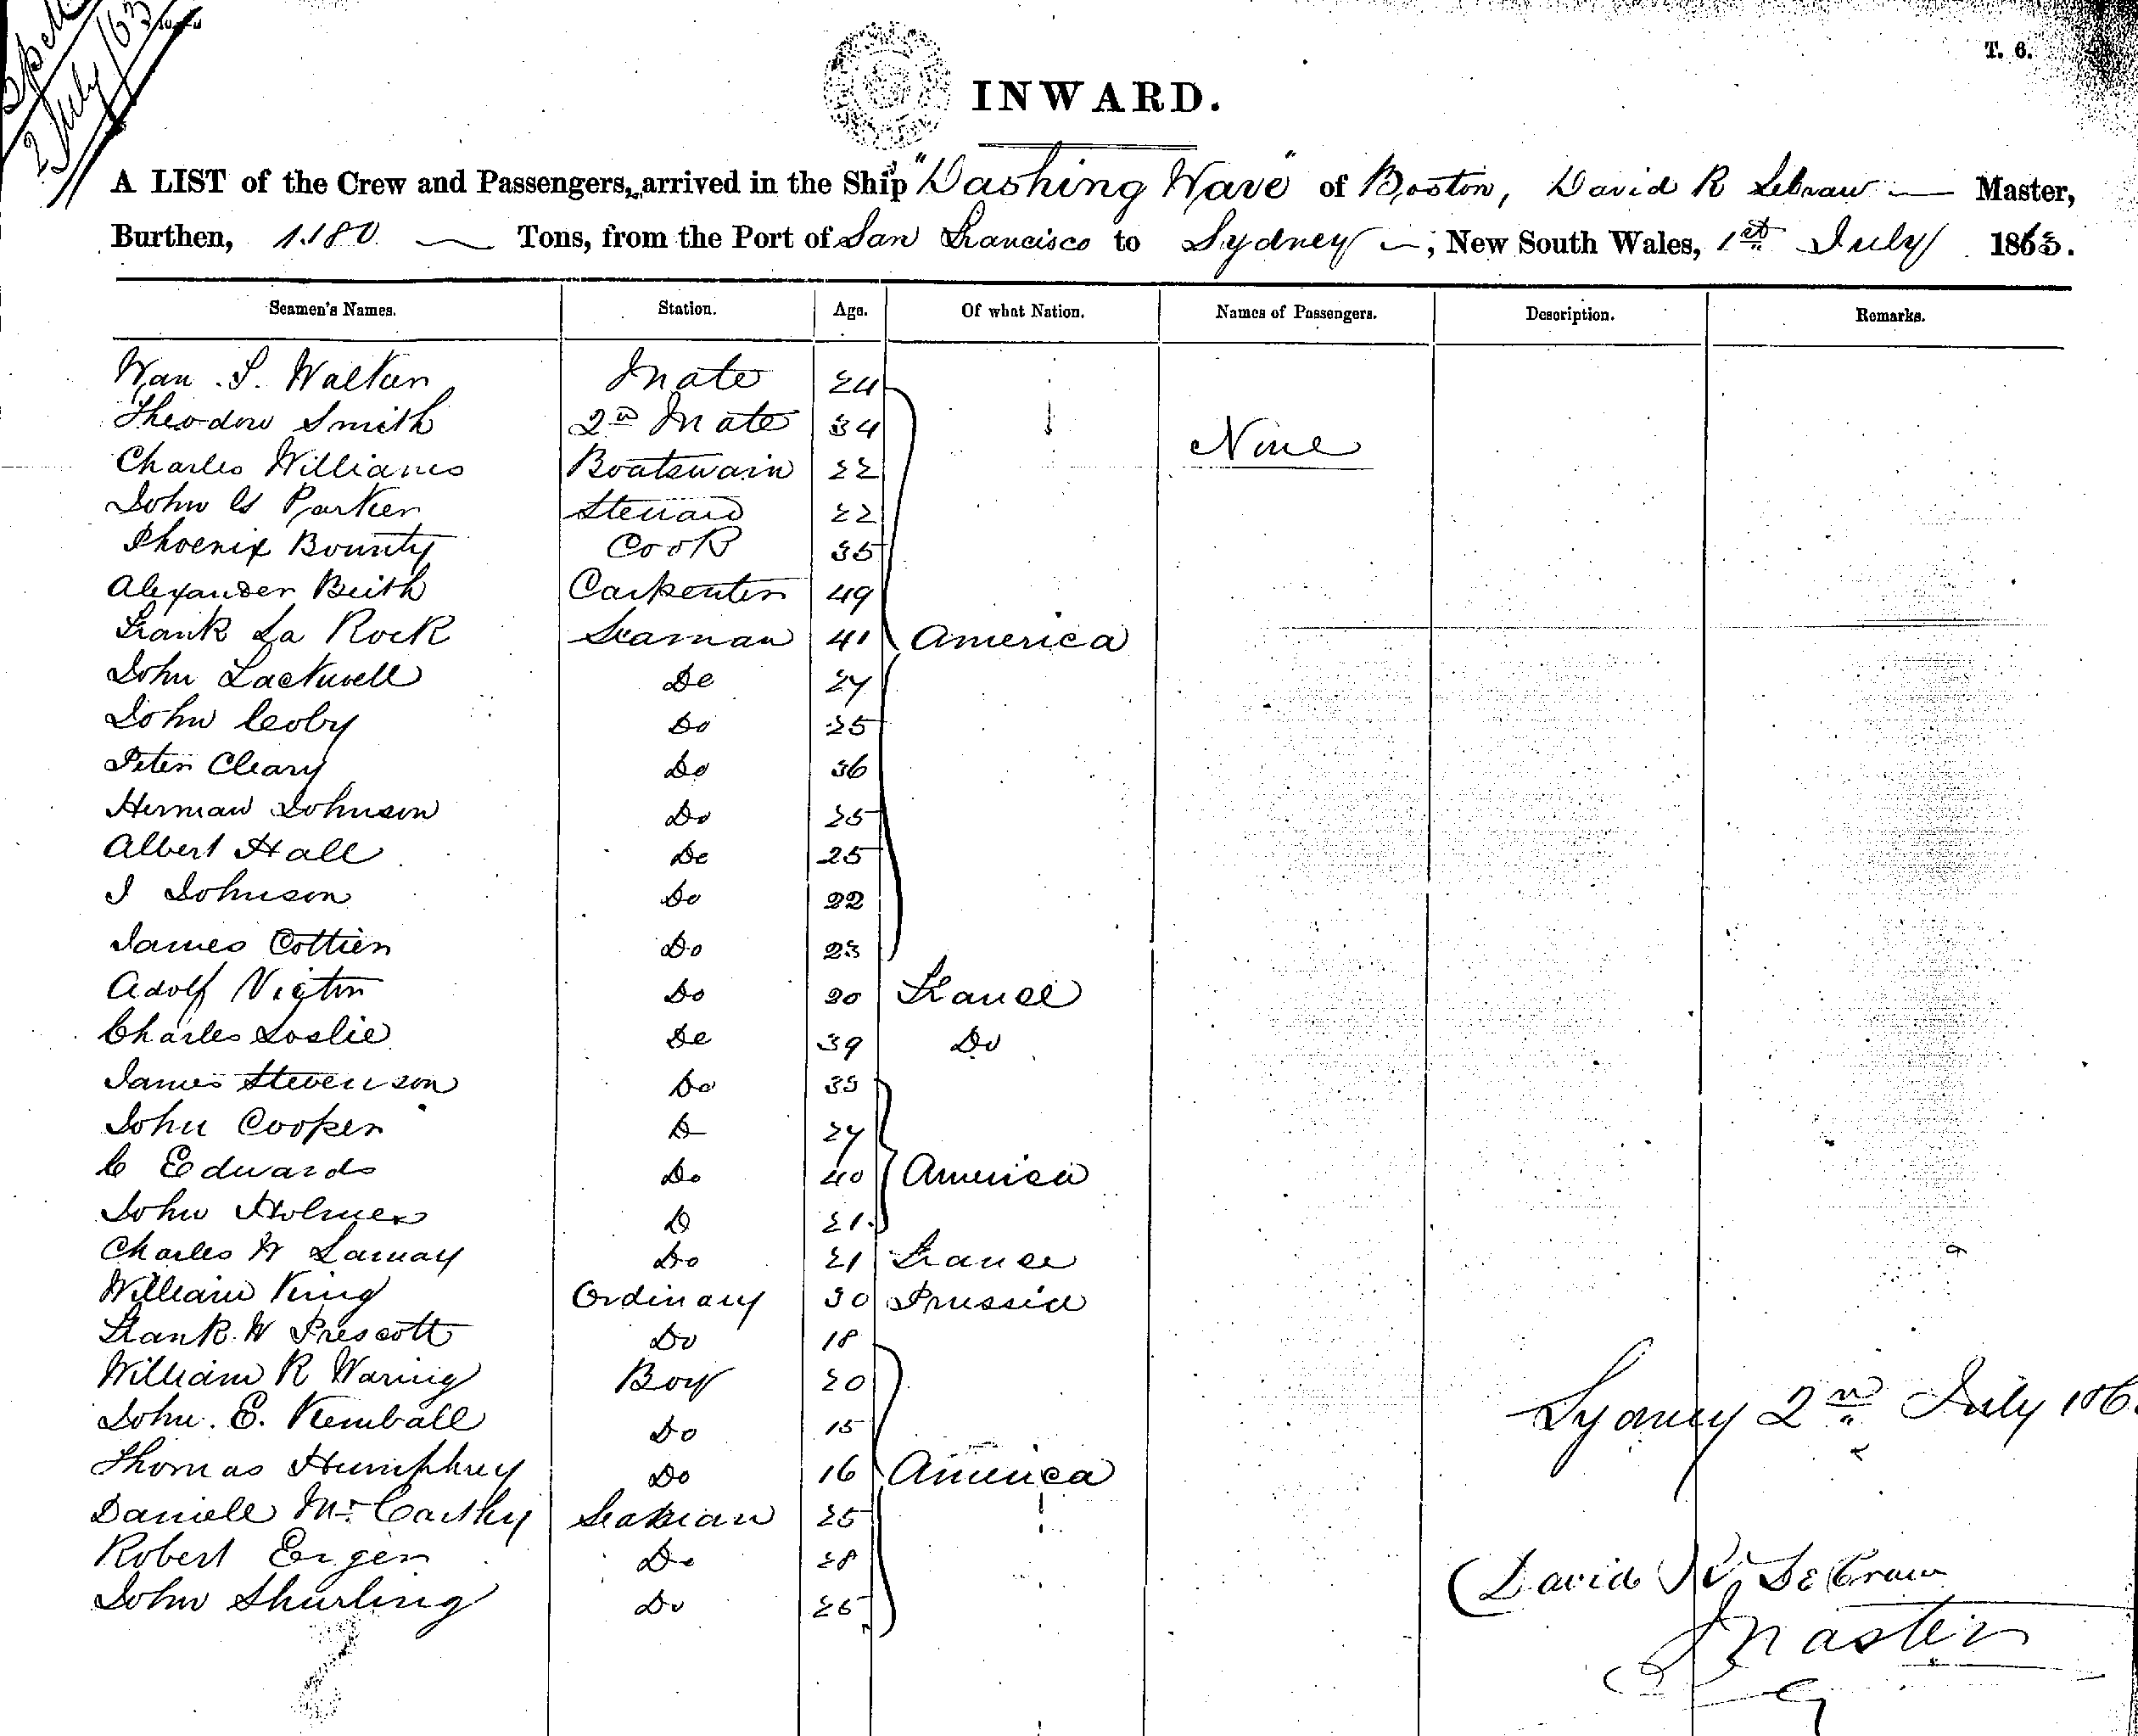 2 July /63
T. 6.
INWARD.
A LIST of the Crew and Passengers, arrived in the Ship "Dashing Wave" of Boston, David R Master,
Burthen, 1.180 Tons, from the Port of San Francisco to Sydney, New South Wales, 1st July 1863.
Seamen's Names. Station. Age. Of what Nation. Names of Passengers. Description. Remarks.
S. Mate 24
Theodore Smith 2nd Mate 34
Charles Williams Boatswain 22
Nine
John G Parker Steward 22
Phoenix Bounty Cook 35
Alexander Beith Carpenter 49
Frank La Rock Seaman 41 America
John Do 27
John Coby Do 25
Peter Cleary Do 36
Herman Johnson Do 25
Albert Hall Do 25
J Johnson Do 22
James Cottier Do 23
Adolf Victor Do 20 France
Charles Do 39 Do
James Stevenson Do 35
John Cooper D 27
C Edwards Do 40 America
John Holmes D 21
Charles W Lamay Do 21 France
William King Ordinary 30 Prussia
Frank W Prescott Do 18
William R Waring Boy 20
John. E. Kemball Do 15
Sydney 2nd July 186
Thomas Humphrey Do 16 America
Daniell McCarthy Seaman 25
Robert Do 28
David R DeCraw
John Shurling Do 25
Master